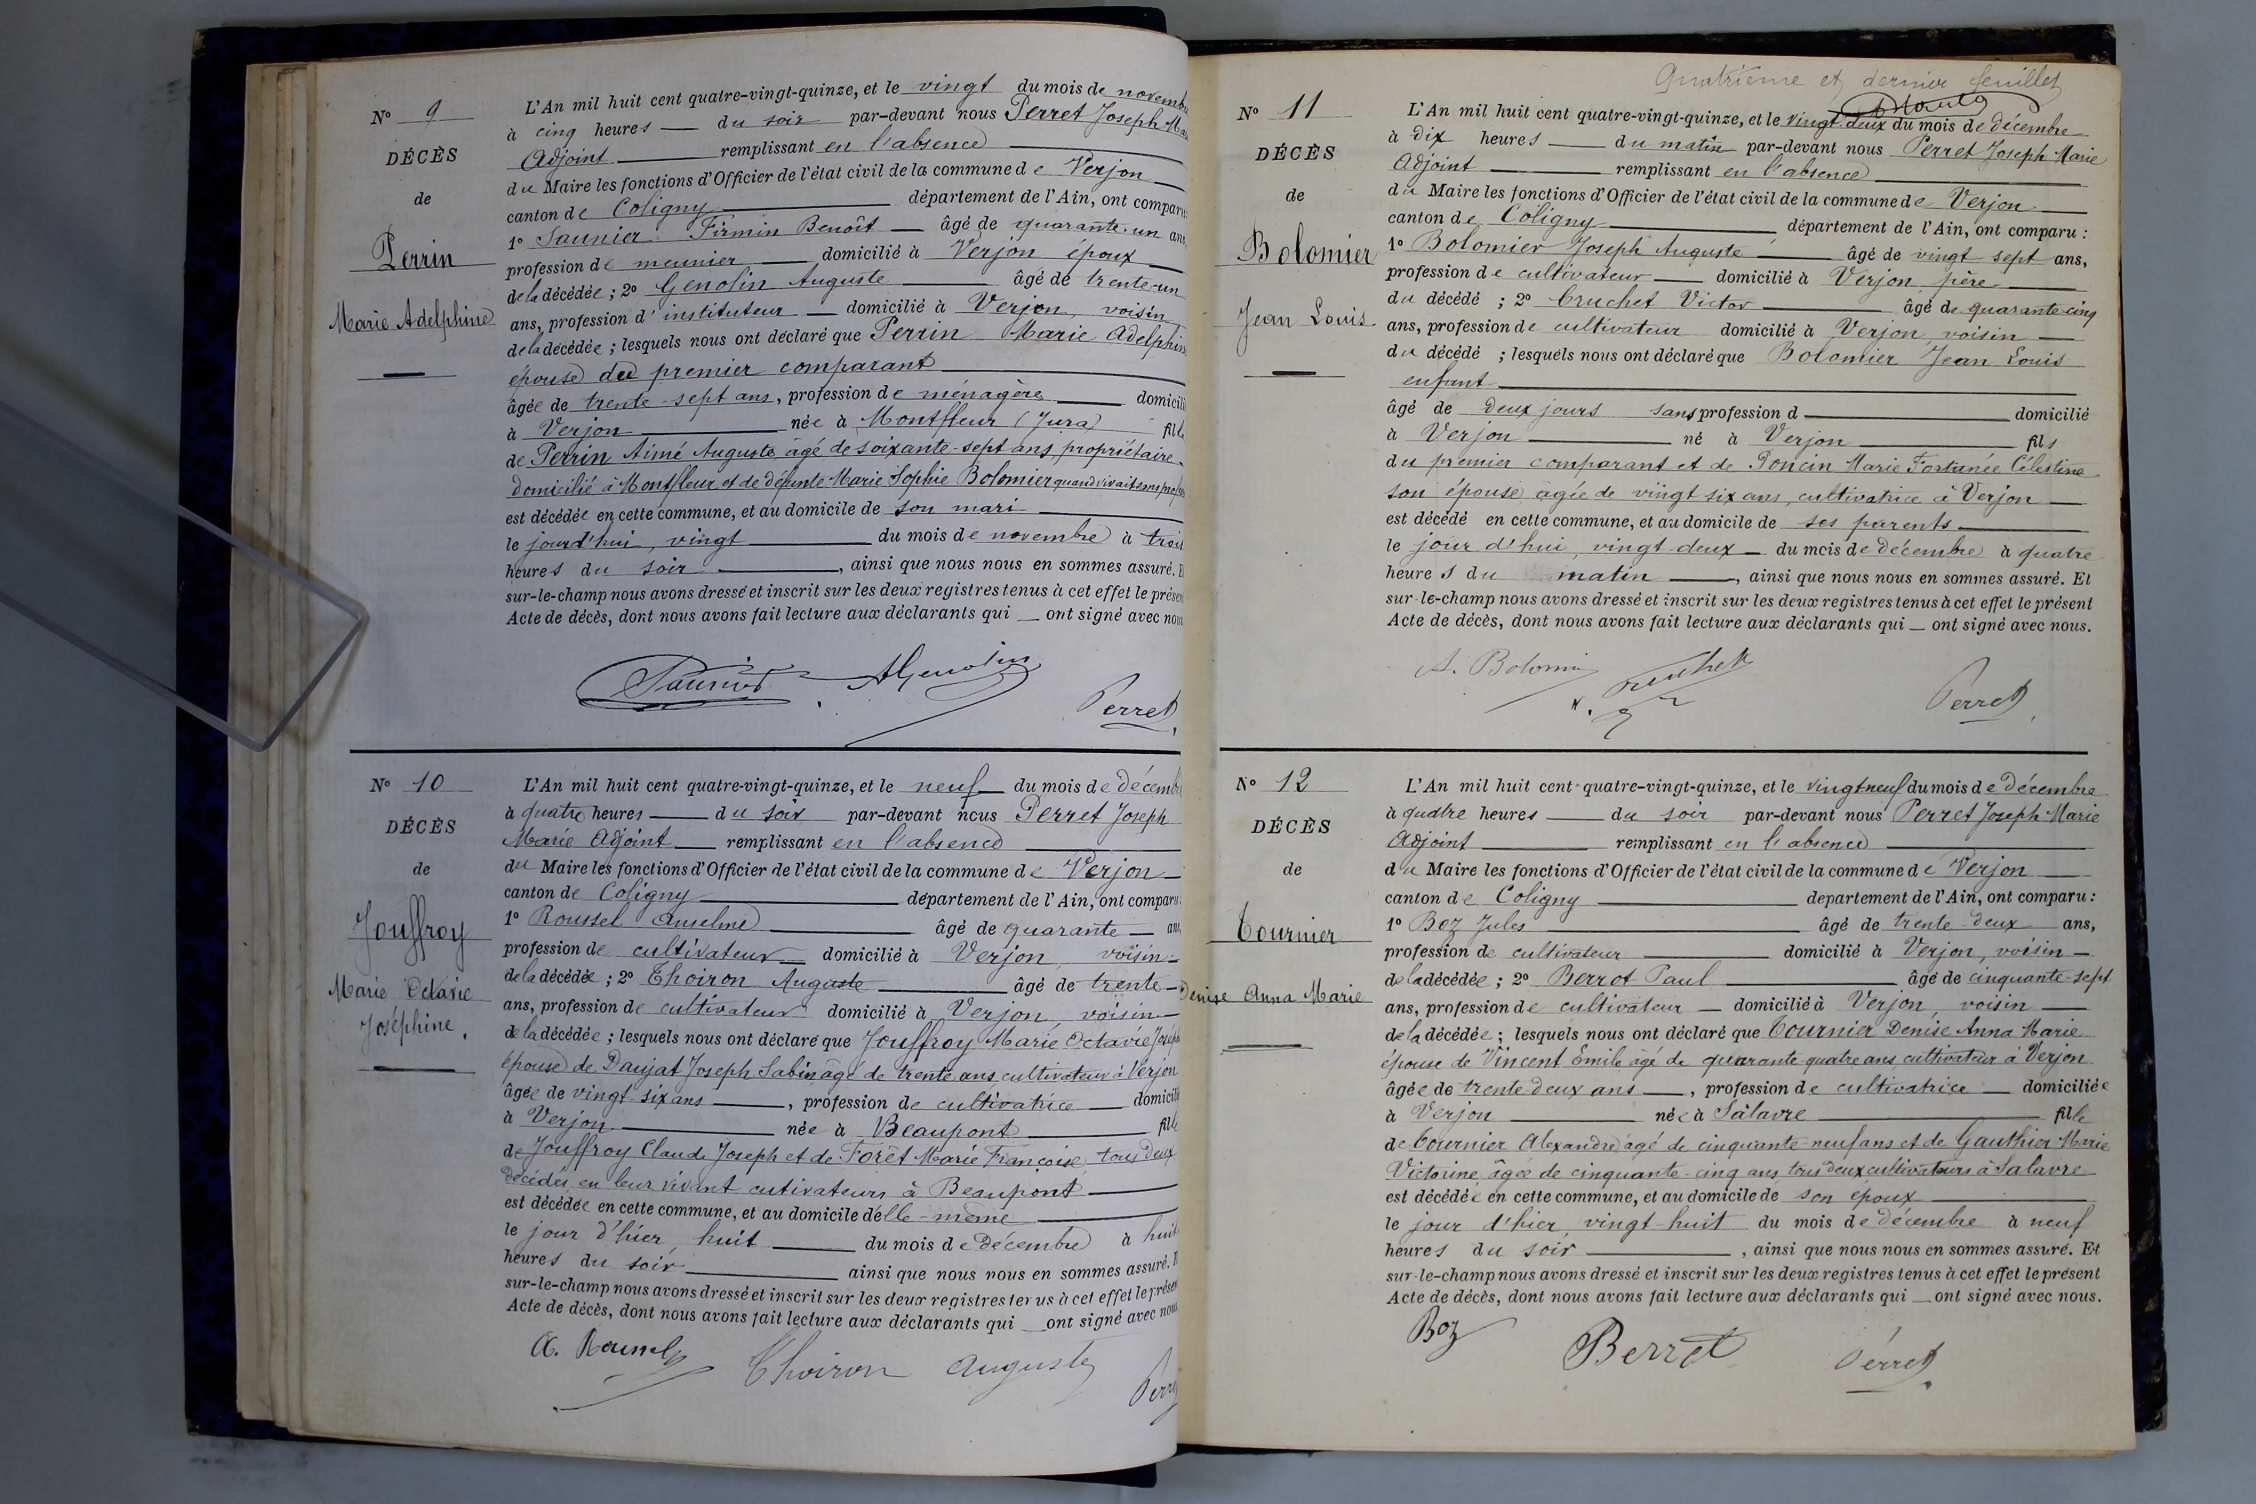 Nº 9
DÉCÈS
de
Perrin
Marie Adelphine
L'An mil huit cent quatre-vingt-quinze, et le vingt du mois de novembre
à cinq heures du soir par-devant nous Perret Joseph Marie
Adjoint remplissant en l'absence
du Maire les fonctions d'Officier de l'état civil de la commune de Verjon
canton de Coligny département de l'Ain, ont comparu:
1º Saunier Firmin Benoît âgé de quarante-un ans
profession de meunier domicilié à Verjon époux
de la décédée; 2º Genolin Auguste âgé de trente-un
ans, profession d'instituteur domicilié à Verjon, voisin
de la décédée; lesquels nous ont déclaré que Perrin Marie Adelphine
épouse du premier comparant
âgée de trente-sept ans, profession de ménagère domicilié
à Verjon née à Montfleur (Jura) fille
de Perrin Aimé Auguste âgé de soixante-sept ans propriétaire
domicilié à Montfleur et de défunte Marie Sophie Bolomier quand vivait sans profes
est décédée en cette commune, et au domicile de son mari
le jourd'hui, vingt du mois de novembre à trois
heures du soir, ainsi que nous nous en sommes assuré. E
sur-le-champ nous avons dressé et inscrit sur les deux registres tenus à cet effet le présen
Acte de décès, dont nous avons fait lecture aux déclarants qui ont signé avec nous
Saunier AGenolin
Perret
Nº 10
DÉCÈS
de
Jouffroy
Marie Octavie
Joséphine.
L'An mil huit cent quatre-vingt-quinze, et le neuf du mois de décembre
à quatre heures du soir par-devant nous Perret Joseph
Marie Adjoint remplissant en l'absence
du Maire les fonctions d'Officier de l'état civil de la commune de Verjon
canton de Coligny département de l'Ain, ont comparu:
1º Roussel Anselme âgé de quarante ans
profession de cultivateur domicilié à Verjon, voisin
de la décédée; 2º Thoiron Auguste âgé de trente
ans, profession de cultivateur domicilié à Verjon, voisin
de la décédée; lesquels nous ont déclaré que Jouffroy Marie Octavie Joséph
épouse de Daujat Joseph Sabin âgé de trente ans cultivateur à Verjon
âgée de vingt-six ans, profession de cultivatrice domicilié
à Verjon née à Beaupont fille
de Jouffroy Claude Joseph et de Forêt Marie Françoise, tous deux
décédés en leur vivant cutivateurs à Beaupont
est décédée en cette commune, et au domicile d'elle-même
le jour d'hier, huit du mois de décembre à huit
heures du soir ainsi que nous nous en sommes assuré. E
sur-le-champ nous avons dressé et inscrit sur les deux registres tenus à cet effet le présen
Acte de décès, dont nous avons fait lecture aux déclarants qui ont signé avec nous
A. Roussel Thoiron Auguste
Perret
Quatrième et dernier feuillet
Nº 11
DÉCÈS
de
Bolomier
Jean Louis
L'An mil huit cent quatre-vingt-quinze, et le vingt-deux du mois de décembre
à dix heures du matin par-devant nous Perret Joseph Marie
Adjoint remplissant en l'absence
du Maire les fonctions d'Officier de l'état civil de la commune de Verjon
canton de Coligny département de l'Ain, ont comparu:
1º Bolomier Joseph Auguste âgé de vingt sept ans,
profession de cultivateur domicilié à Verjon, père
du décédé; 2º Cruchet Victor âgé de quarante-cinq
ans, profession de cultivateur domicilié à Verjon, voisin
du décédé; lesquels nous ont déclaré que Bolomier Jean Louis
enfant
âgé de deux jours sans profession d domicilié
à Verjon né à Verjon fils
du premier comparant et de Poncin Marie Fortunée Célestine
son épouse âgée de vingt six ans, cultivatrice à Verjon
est décédé en cette commune, et au domicile de ses parents
le jour d'hui, vingt-deux du mois de décembre à quatre
heures du matin, ainsi que nous nous en sommes assuré. Et
sur-le-champ nous avons dressé et inscrit sur les deux registres tenus à cet effet le présent
Acte de décès, dont nous avons fait lecture aux déclarants qui ont signé avec nous.
A. Bolomi
Perret
Nº 12
DÉCÈS
de
Tournier
Denise Anna Marie
L'An mil huit cent quatre-vingt-quinze, et le vingt neuf du mois de décembre
à quatre heures du soir par-devant nous Perret Joseph Marie
Adjoint remplissant en l'absence
du Maire les fonctions d'Officier de l'état civil de la commune de Verjon
canton de Coligny département de l'Ain, ont comparu:
1º Boz Jules âgé de trente-deux ans,
profession de cultivateur domicilié à Verjon, voisin
de la décédée; 2º Berrot Paul âgé de cinquante-sept
ans, profession de cultivateur domicilié à Verjon, voisin
de la décédée; lesquels nous ont déclaré que Tournier Denise Anna Marie
épouse de Vincent Emile âgé de quarante-quatre ans, cultivateur à Verjon
âgée de trente-deux ans, profession de cultivatrice domiciliée
à Verjon née à Salavre fille
de Tournier Alexandre âgé de cinquante neuf ans et de Gauthier Marie
Victorine âgée de cinquante-cinq ans, tous deux cultivateurs à Salavre
est décédée en cette commune, et au domicile de son époux
le jour d'hier vingt-huit du mois de décembre à neuf
heures du soir, ainsi que nous nous en sommes assuré. Et
sur-le-champ nous avons dressé et inscrit sur les deux registres tenus à cet effet le présent
Acte de décès, dont nous avons fait lecture aux déclarants qui ont signé avec nous.
Boz Berrot Perret